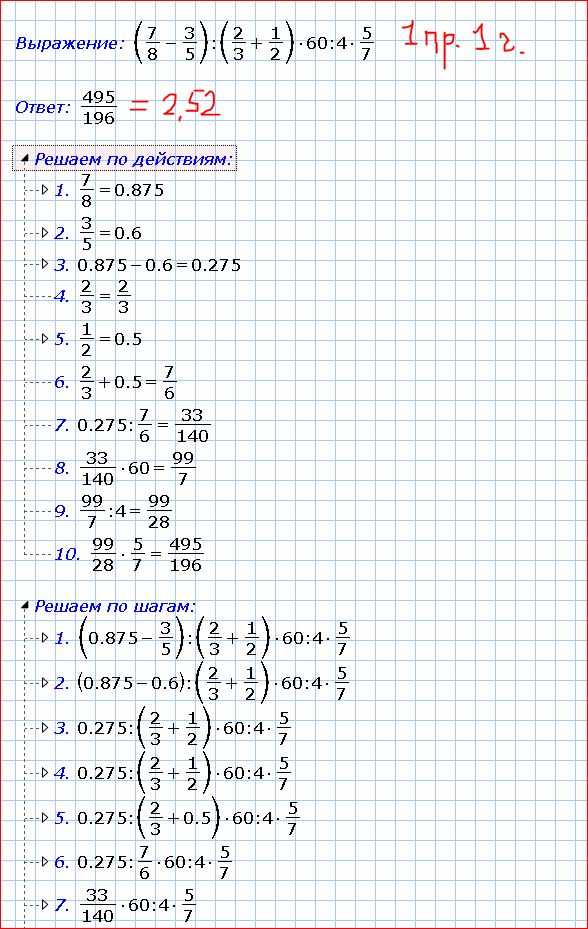 Выражение: (7/8 − 3/5):(2/3 + 1/2)·60:4·5/7 1 пр. 1 г.
Ответ: 495/196 = 2,52
Решаем по действиям:
1. 7/8 = 0.875
2. 3/5 = 0.6
3. 0.875 − 0.6 = 0.275
4. 2/3 = 2/3
5. 1/2 = 0.5
6. 2/3 + 0.5 = 7/6
7. 0.275:7/6 = 33/140
8. 33/140·60 = 99/7
9. 99/7:4 = 99/28
10. 99/28·5/7 = 495/196
Решаем по шагам:
1. (0.875 − 3/5):(2/3 + 1/2)·60:4·5/7
2. (0.875 − 0.6):(2/3 + 1/2)·60:4·5/7
3. 0.275:(2/3 + 1/2)·60:4·5/7
4. 0.275:(2/3 + 1/2)·60:4·5/7
5. 0.275:(2/3 + 0.5)·60:4·5/7
6. 0.275:7/6·60:4·5/7
7. 33/140·60:4·5/7